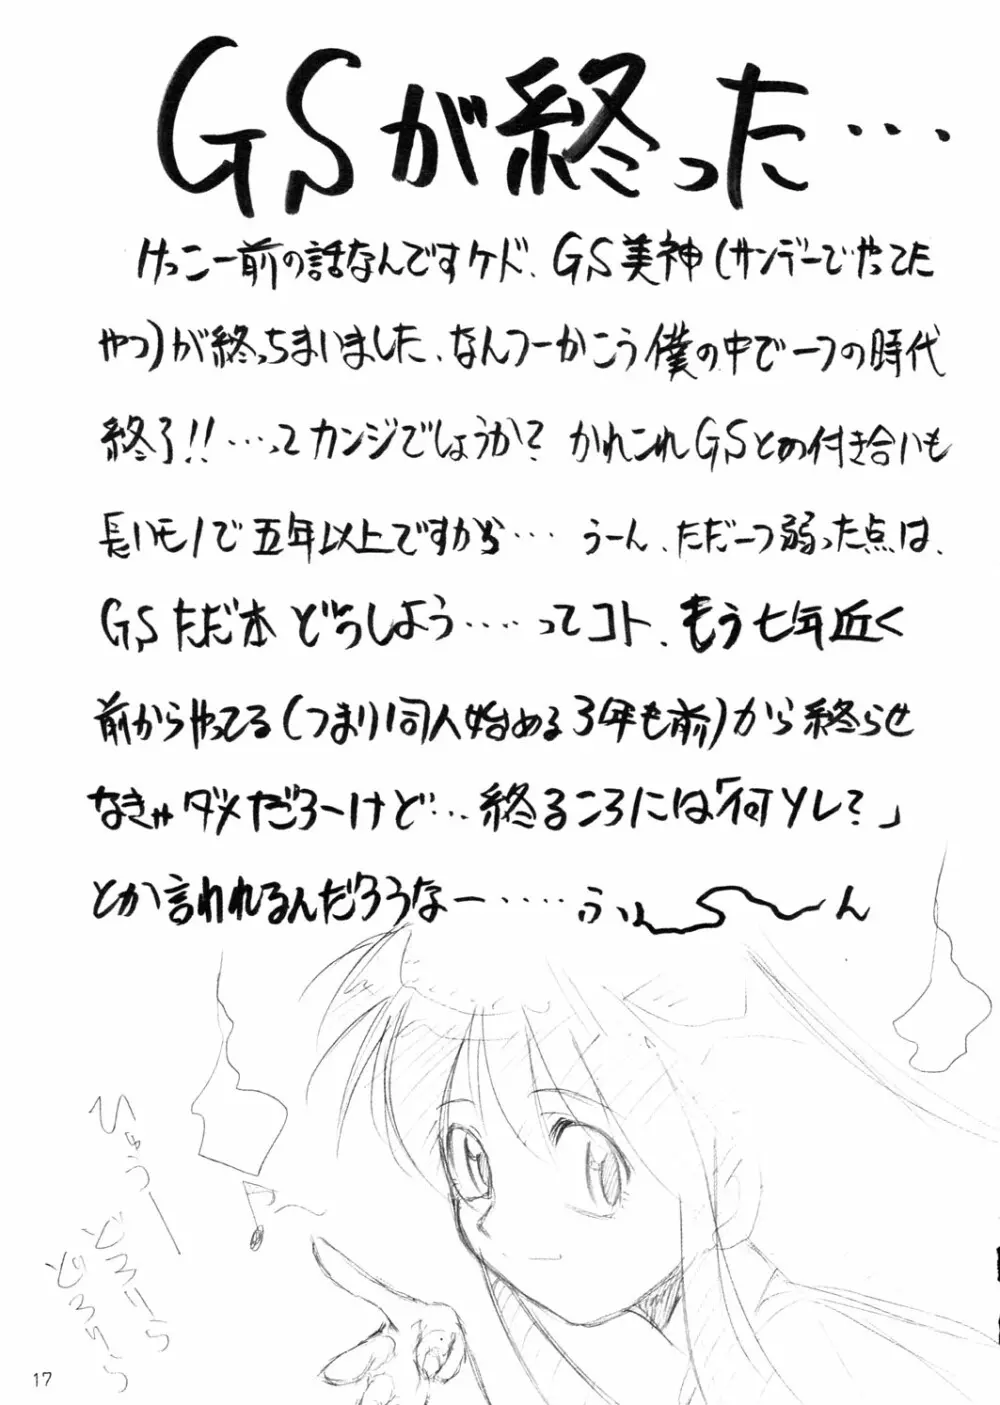 GSが終った…
けっこー前の話なんですケド、GS美神(サンデーでやってた
やつ)が終っちまいました、なんつーかこう僕の中で一つの時代
終了!!…ってカンジでしょうか? かれこれGSとの付き合いも
長いモノで五年以上ですから… うーん、ただ一つ弱った点は、
GSただ本どうしよう……ってコト、もう七年近く
前からやってる(つまり同人始める3年も前)から終らせ
なきゃダメだろーけど…終るころには「何ソレ?」
とか言われるんだろうなー……ふぃ〜ん
ひゅうー
どろりら
どろりら
17